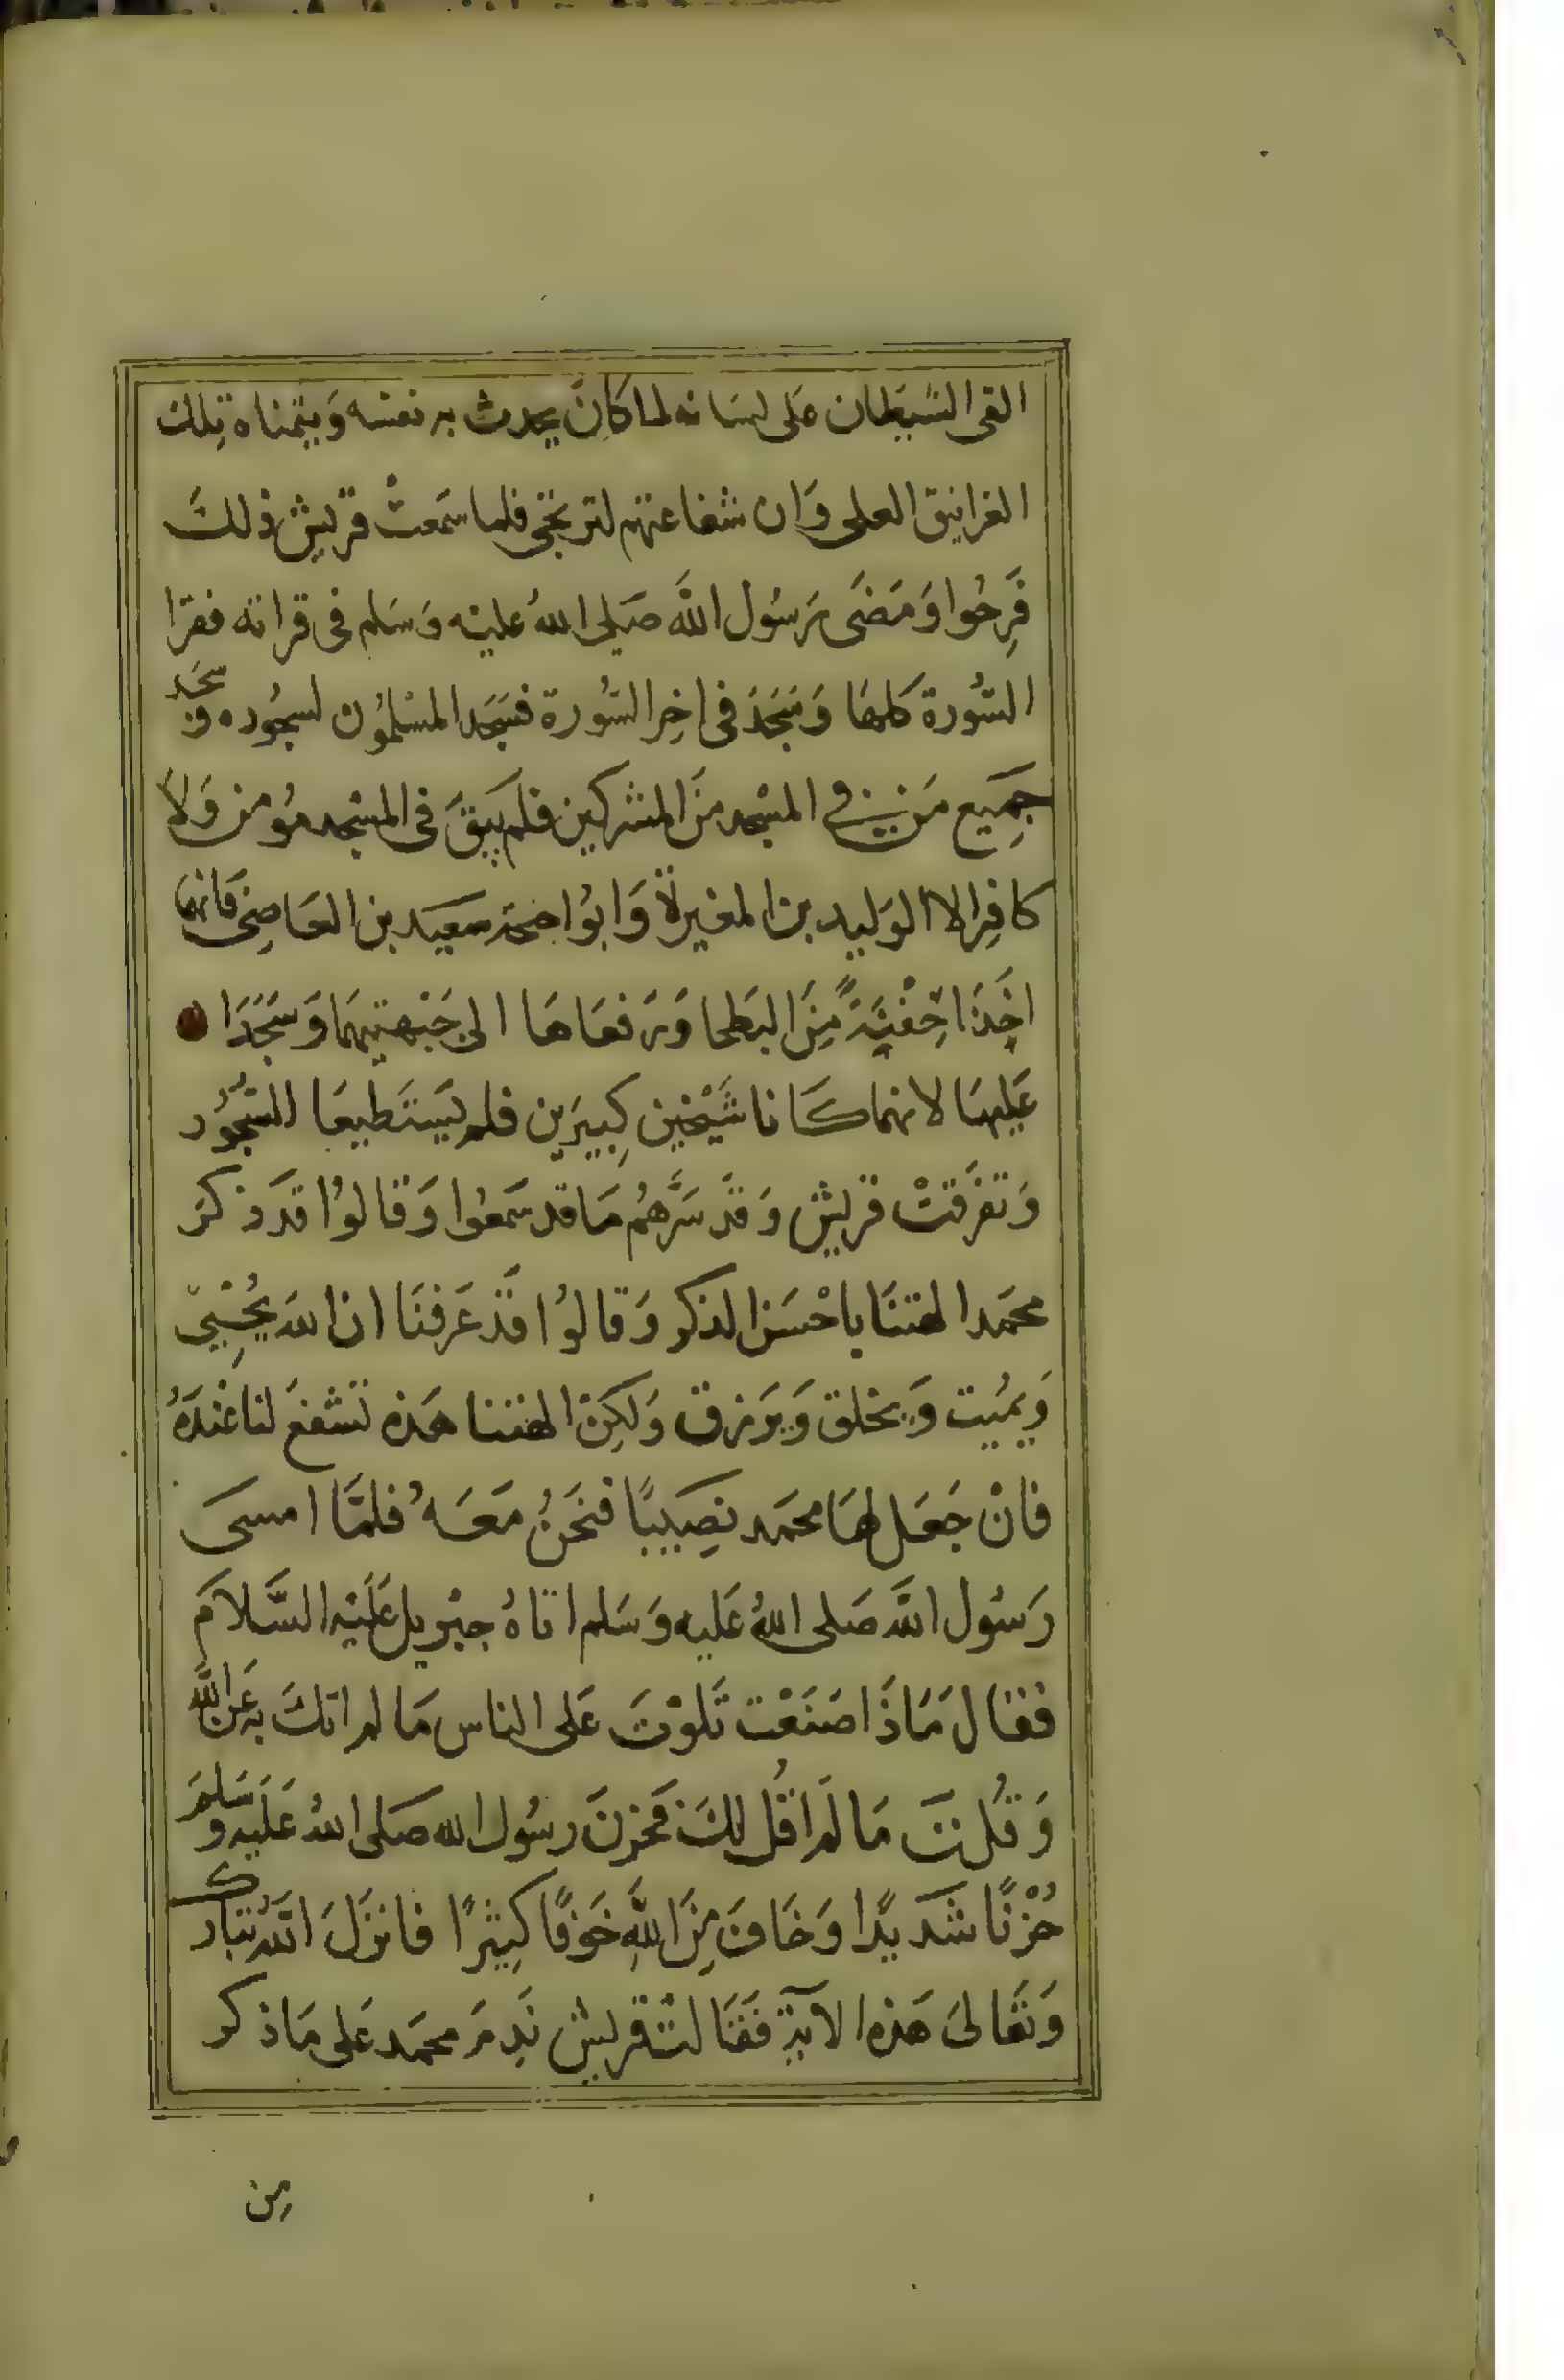 القى الشيطان على لسانه لما كانَ يحدث به نفسه وَيتمناه تِلك
الغرانيق العلى وَان شفاعتهم لترتجى فلما سَمعتْ قريش ذلكَ
فَرِحُوا وَمَضَى رَسُول اللَّه صَلى اللهُ عليْه وَسَلم فى قراته فقرا
السُّورة كلهَا وَسَجَدَ فى اخِر السُّورة فسَجَد المسْلمُون لسجُوده وَسجَد
جَمِيع مَن فى المسْجد منَ المشركين فلم يَبقَ فى المسْجد مُومن وَلا
كافِر الا الوَليد بن المغيرة وَابوُا احيحة سَعيَد بن العَاصِى فَانهما
اخَذَا حِفْنَةً مِنَ البَطحا وَرَفعَاهَا الى جَبْهتيهمَا وَسَجَدَا
عَليهَا لانهما كَانا شَيْخين كِبيرَين فلم يَستَطيعَا السُّجُود
وَتفرَقتْ قريش وَقَد سَرَّهُم مَا قد سَمعُوا وَقالوُا قَد ذكر
محمَد الهتنَا باحْسَن الذكر وَقالوُا قَد عَرفنَا ان اللهَ يُحْيِي
وَيميُت وَيخلق وَيَرزق وَلكِنْ الهتنا هَذه تشفعَ لنا عنْدَهُ
فانْ جَعَل لهَا محمَد نصِيَبًا فنَحَنُ مَعَهُ فلمَّا امسَى
رَسُول اللَّه صَلى اللهُ عَليه وَسَلم اتاهُ جبْريل عَلَيْه السَّلامَ
فقالَ مَاذَا صَنَعْت تَلوْتَ عَلى الناس مَا لم اتكَ به عَن اللَّه
وَقُلتَ مَا لم اقُل لكَ فحَزنَ رسُول الله صَلى اللهُ عَليَه وَسَلمَ
حُزْنًا شَديدًا وَخَافَ مِنَ اللَّهِ خَوفًا كِثيرًا فانزَلَ اللَّهُ تبارك
وَتعَالىَ هَذه الآيَة فقَالتْ قريش نَدِمَ محمَد عَلى مَا ذكر
مِن